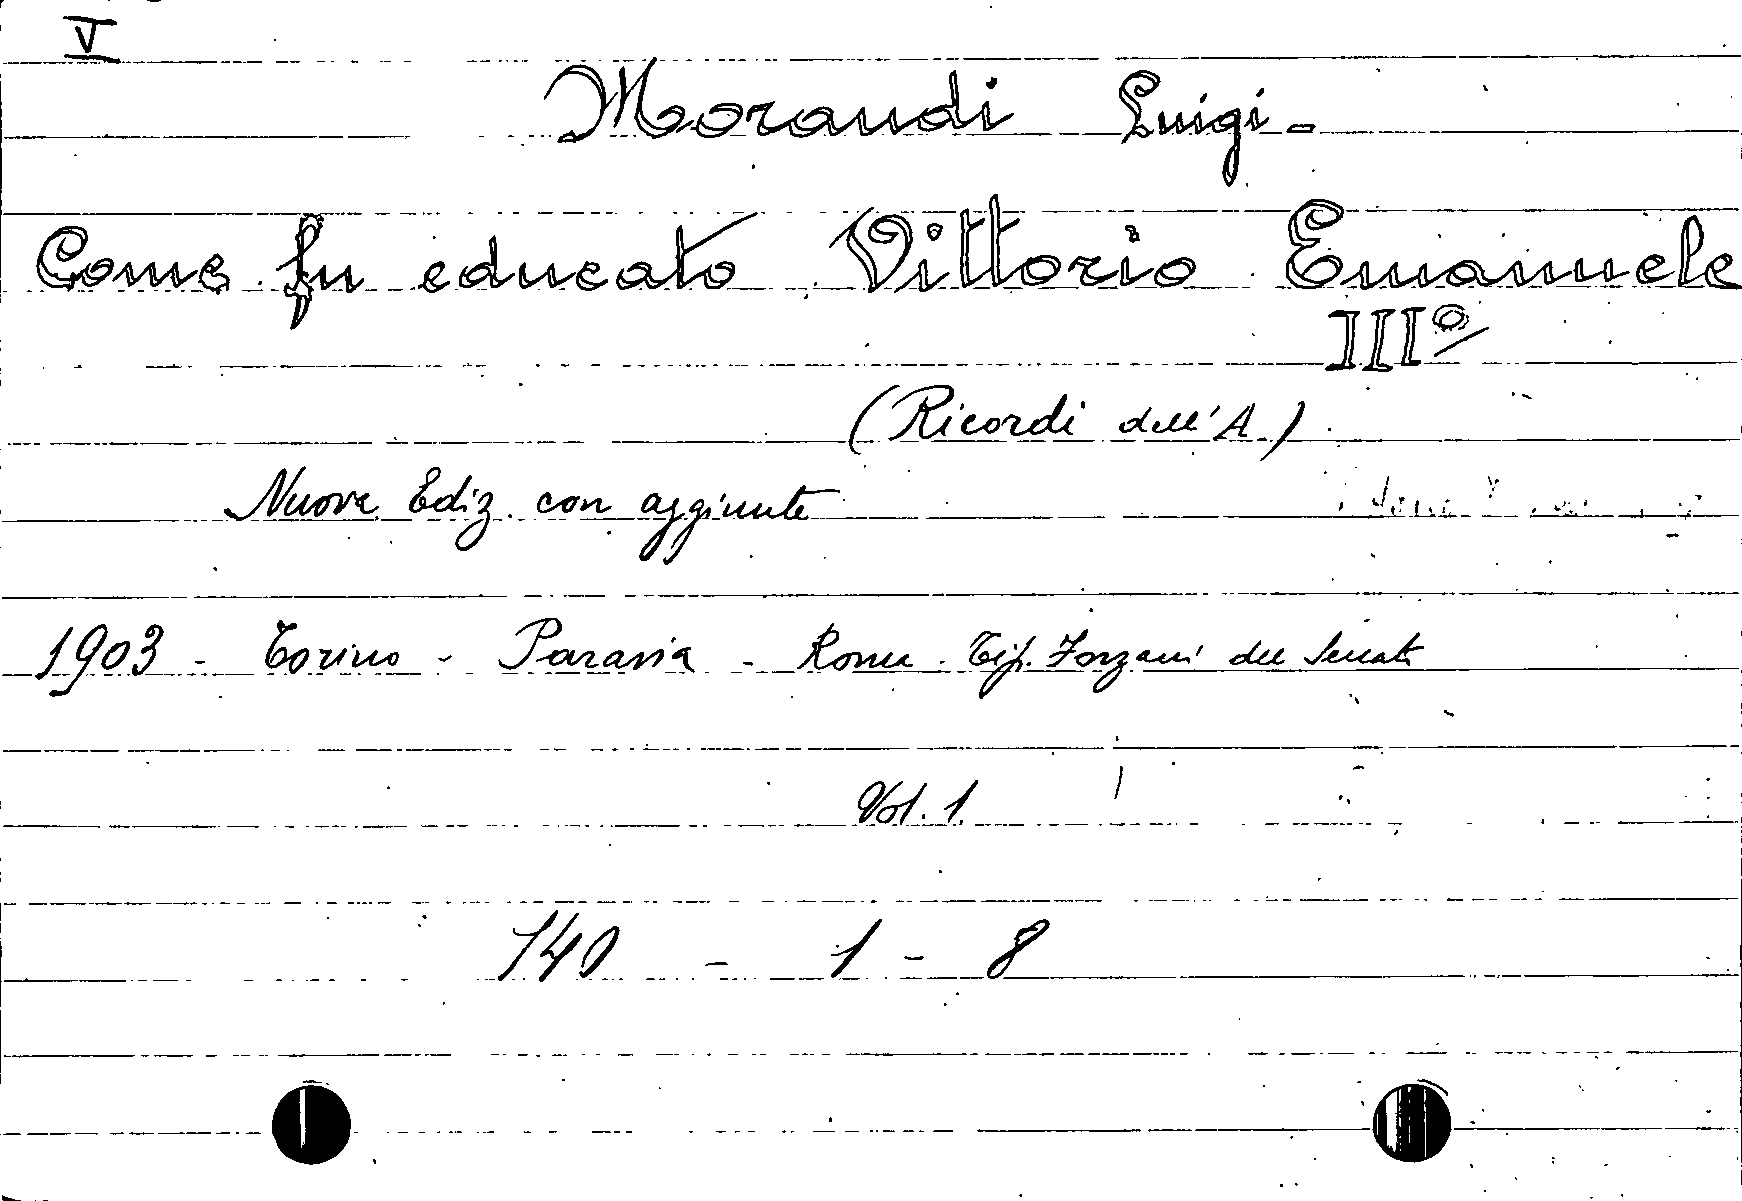 V
Morandi Luigi -
Come fu educato Vittorio Emanuele
III°
(Ricordi dell'A.)
Nuova Ediz. con aggiunte
1903 - Torino - Paravia - Roma - Tip. Forzani del Senato
Vol. 1.
140 - 1 - 8